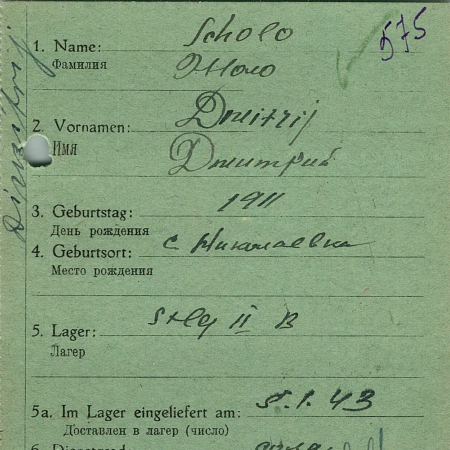 575
1. Name: Scholo
Фамилия Жоло
2. Vornamen: Dmitrij
Имя Дмитрий
3. Geburtstag: 1911
День рождения
4. Geburtsort: с. Николаевка
Место рождения
5. Lager: Stlg II B
Лагер
5a. Im Lager eingeliefert am: 5.1.43
Доставлен в лагер (число)
6. Dienstgrad